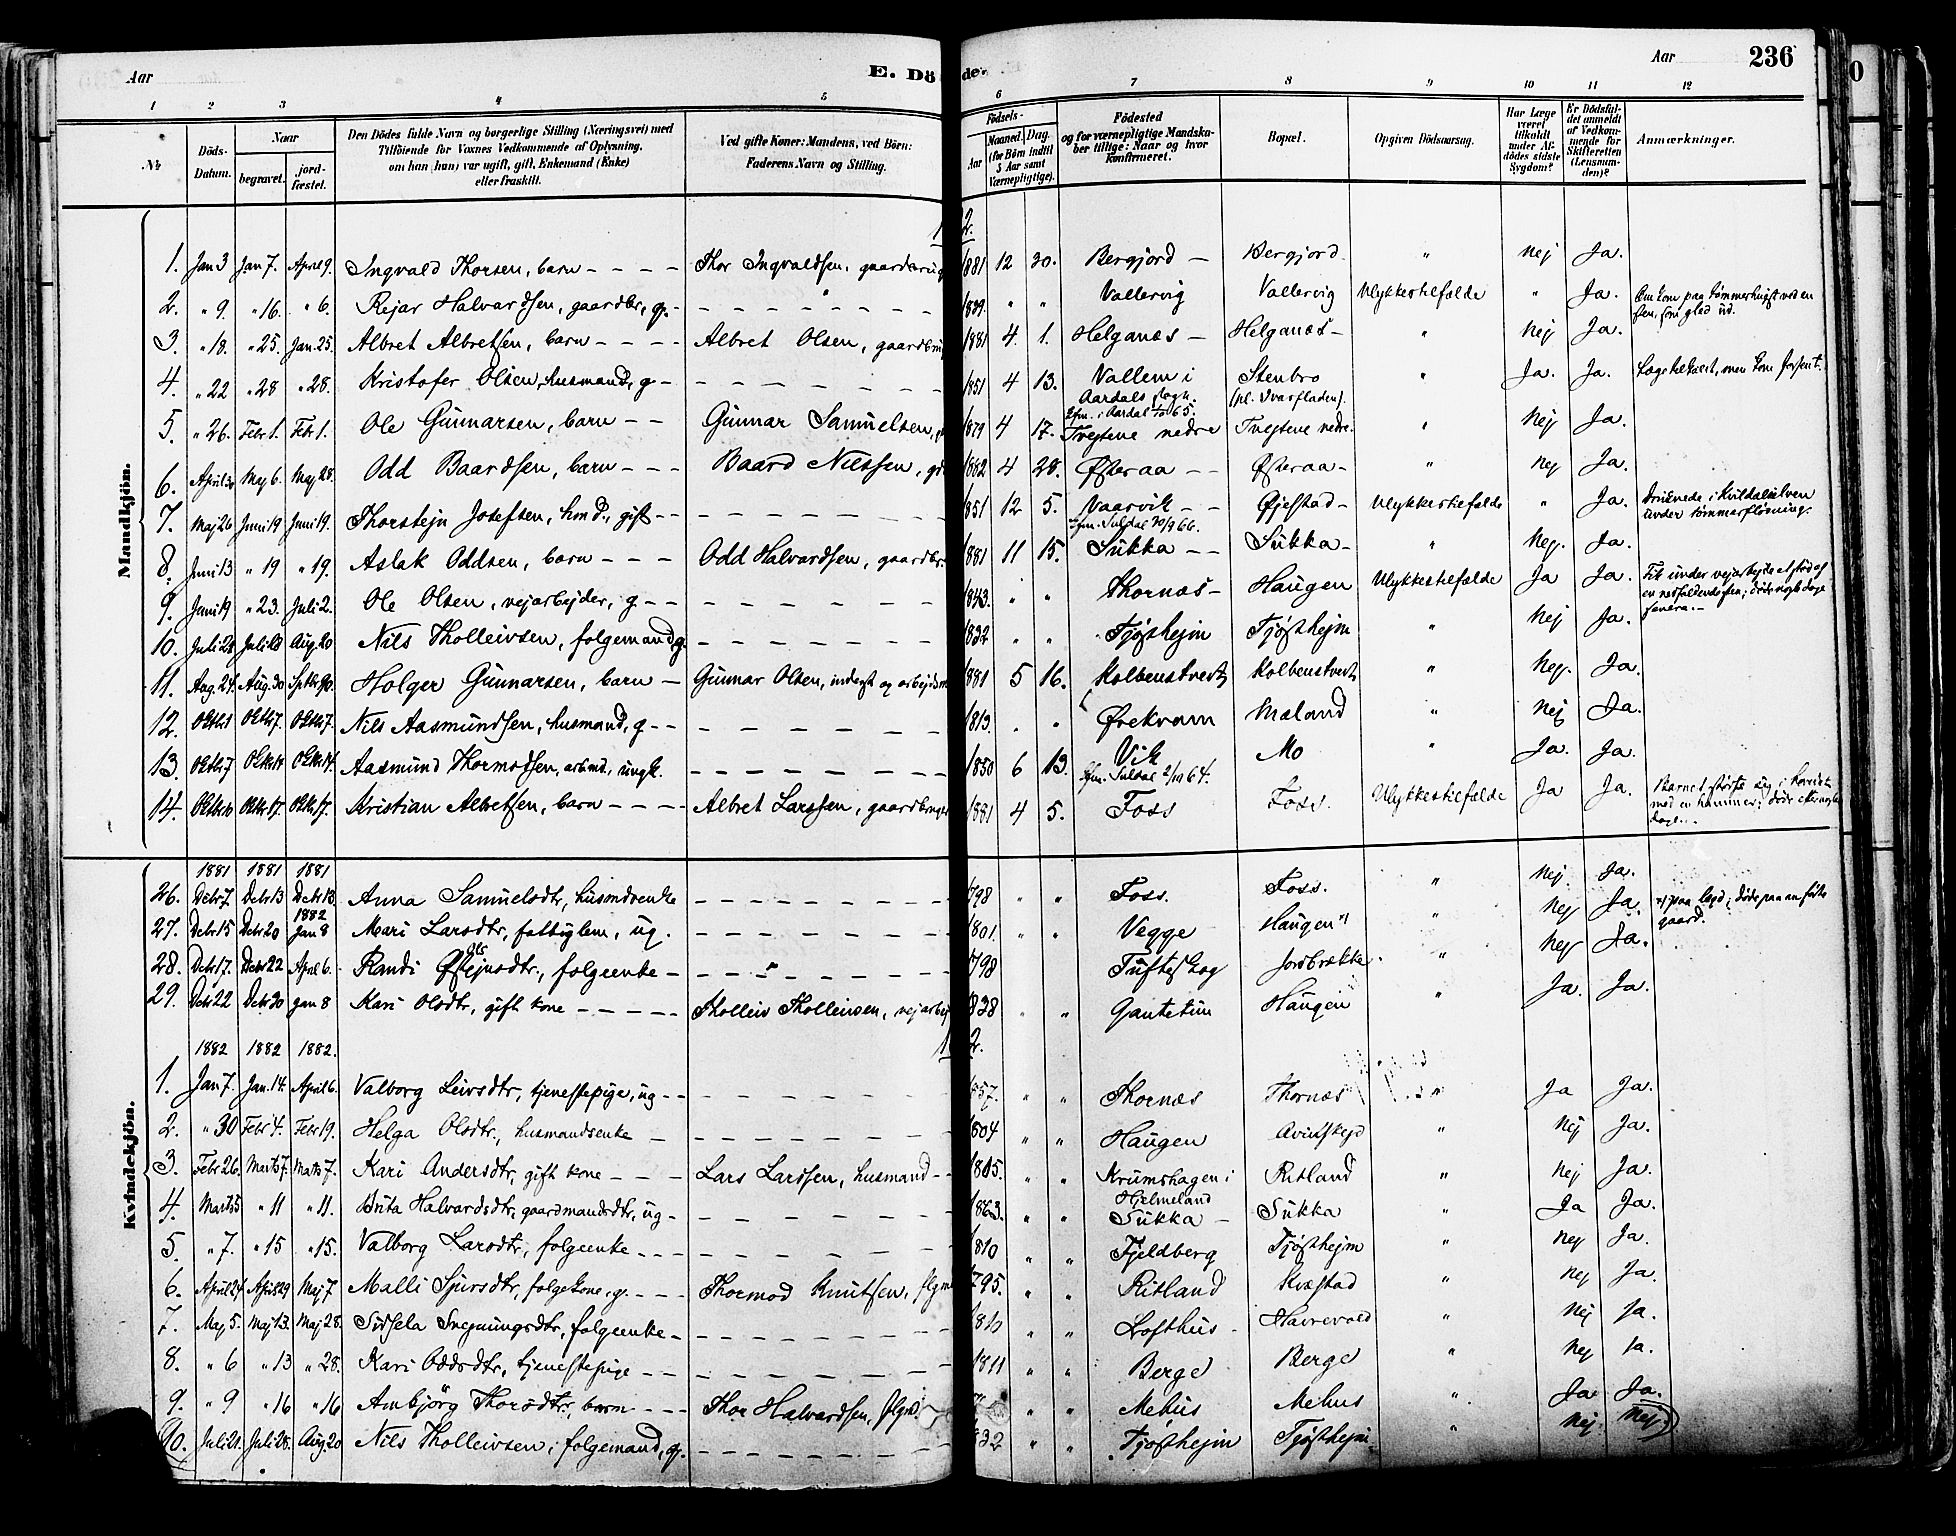 Aar E. Dö de. Aar 236
1 2 3 4 5 6 7 8 9 10 11 12
№ Döds-Datum. Naar begravet. jord-fæstet. Den Dödes fulde Navn og borgerlige Stilling (Næringsvei) med Tilföiende for Voxnes Vedkommende af Oplysning, om han (hun) var ugift, gift, Enkemand (Enke) eller fraskilt. Ved gifte Koner: Mandens, ved Börn: Faderens Navn og Stilling. Födsels- Aar Maaned. Dag. (for Börn indtil 5 Aar samt Værnepligtige). Födested og for værnepligtige Mandskaber tillige: Naar og hvor konfirmeret. Bopæl. Opgiven Dödsaarsag. Har Læge været tilkaldt under Afdödes sidste Sygdom? Er Dödsfaldet anmeldt af Vedkommende for Skifteretten (Lensmanden)? Anmærkninger.
Mandkjön.
1. Jan 3 Jan 7. April 9. Ingvald Thorsen, barn - - - - Thor Ingvaldsen, gaardbrug 1881 12 30. Bergjord - Bergjord. " Nej Ja.
2. " 9 " 16. " 6. Rejar Halvardsen, gaardbr, g. - - - - - - - 1839. " " Vallervig Vallervig Ulykkestilfælde " Ja.
3. " 18. " 25. Jan. 25. Albret Albretsen, barn - - - - Albret Olsen, gaardbru 1881 4. 1. Helganæs - Helganæs - " Nej Ja.
4. " 22 " 28 " 28. Kristofer Olsen, husmand, g - - - - - - - 1851 4 13. Vallem i Aardals sogn. Kfm. i Aardal 65. Stenbro (pl. Svasfladen). " Ja. Ja. Læge tilkaldt, men kom forsent.
5. " 26. Febr 1. Febr 1. Ole Gunnarsen, barn - - Gunnar Samuelsen, 1879 4 17. Tvejtene nedre Tvejtene nedre. " Nej Ja.
6. April 30 Maj 6. Maj 28. Odd Baardsen, barn - - - Baard Nilssen, 1882 4 28. Østeraa - - Østeraa - " Nej Ja.
7. Maj 26 Juni 19 Juni 19. Thorstejn Josefsen, hmd, gift - - - - - - - 1851 12 5. Vaarvik - - Kfm. Suldal 30/9 66. Gjefstad - Ulykkestilfælde " Ja. Druknede i Kvildalselven under tømmerfløtning.
8. Juni 13 " 19 " 19. Aslak Oddsen, barn - - - Odd Halvardsen, gaardbr. 1881 11 15. Sukka - - Sukka - " Nej. Ja.
9. Juni 19 " 23. Juli 2. Ole Olsen, vejarbejder, g - - - - - - - 1843. " " Thornæs - Haugen Ulykkestilfælde Ja Ja. Fik under vejarbejde et stød af en nedfaldende sten; døde nogle dage senere. -
10. Juli 21 Juli 28 Aug. 20 Nils Tholleivsen, folgemand g. - - - - - - 1832 " " Tjøsthejm Tjøsthejm " Nej Ja.
11. Aug. 24. Aug. 30 Septbr 10. Holger Gunnarsen, barn - Gunnar Olsen, inderst og arbejdsm 1881 5 16. Kolbenstvedt Kolbenstvedt " Nej. Ja.
12. Oktbr 1 Oktbr 7. Oktbr 7. Nils Aasmundsen, husmand, g - - - - - - 1813. " " Ørekvam Mæland " Nej Ja.
13. Oktbr 7 Oktbr 14 Oktbr 14. Aasmund Thormodsen, arbmd., ungk. - - - - - - - 1850 6 13. Vik Kfm. Suldal 2/10 64. Mo " Ja. Ja.
14. Oktbr 10 Oktbr 17. Oktbr 17. Kristian Albretsen, barn - - - - Albret Larssen, gaardbruger 1881 4 5. Foss Foss. Ulykkestilfælde Ja Ja. Barnet stødte sig i hovedet med en hammer; døde efter nogle dage. -
Kvindekjön.
1881 1881 1881
26. Debr 7 Debr 13 Debr 13. Anna Samuelsdtr, husmdsenke - - - - - - - 1798 " " Foss. Foss. " Nej. Ja.
27. Debr 15 Debr 20 1882 Jan 8 Mari Larsdtr, fattiglem, ug. - - - - - - 1801. " " Vegge Haugen *) " Nej Ja. *) paa lægd; døde paa anførte gaard.
28. Debr 17. Debr 22 April 6. Randi Østejnsdtr, folgeenke - - - - - - - 1798 Tufteskog Jordbrække " Nej Ja.
29. Debr 22 Debr 30 Jan 8 Kari Olsdtr, gift kone - - - - - Tholleiv Tholleivsen, vejarbej 1838 " " Gautetun Haugen " Ja. Ja.
1882 1882 1882.
1. Jan 7. Jan. 14. April 6. Valborg Leivsdtr, tjenestepige, ug - - - - - - - 1857. " " Thornæs Thornæs " Ja Ja.
2. " 30 Febr 4. Febr 19. Helga Olsdtr, husmandsenke - - - - - - 1804 " " Haugen " Nej Ja.
3. Febr 26. Marts 7. Marts 7. Kari Andersdtr, gift kone - - - Lars Larssen, husmand - - 1815. " " Krumshagen i Hjelmeland Ritland " Nej Ja.
4. Marts 5 " 11 " 11. Brita Halvardsdtr, gaardmandsdtr, ug - - - - - - - 1863. " " Sukka - Sukka " Ja Ja.
5. " 7. " 15 " 15. Valborg Larsdtr, folgeenke - - - - - - - - 1810 " " Fjeldberg Tjøsthejm " Nej Ja.
6. April 24 April 29 Maj 7 Malli Sjursdtr, folgekone, g. - - - Thormod Knutsen, flgm 1795. " " Ritland Kvæstad " Nej Ja.
7. Maj 5. Maj 13. Maj 28. Sidsela Svejnungsdtr, folgeenke - - - - - - - " " Lofthus - Havrevold " Nej Ja.
8. " 6 " 13 " 28. Kari Oddsdtr, tjenestepige - - - - - - - - 1811 " " Berge Berge " Nej Ja.
9. " 9 " 16 " 16 Ambjörg Thorsdtr, barn - - - Thor Halvardsen, flgmd. " " Mehus Mehus " Ja Ja.
10. Juli 21. Juli 28. Aug 20 Nils Tholleivsen, folgemand, g. - - - - - - - 1832 " " Tjøsthejm Tjøsthejm " Nej. Nej.